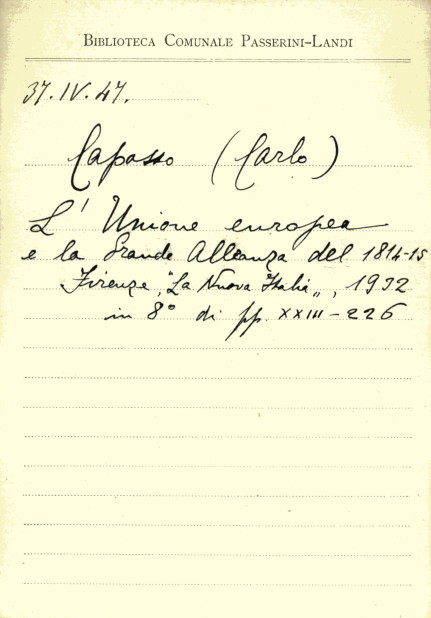 BIBLIOTECA COMUNALE PASSERINI-LANDI
37.IV.47.
Capasso (Carlo)
L' Unione europea
e la Grande Alleanza del 1814-15
Firenze, "La Nuova Italia„, 1932
in 8° di pp. XXIII-226